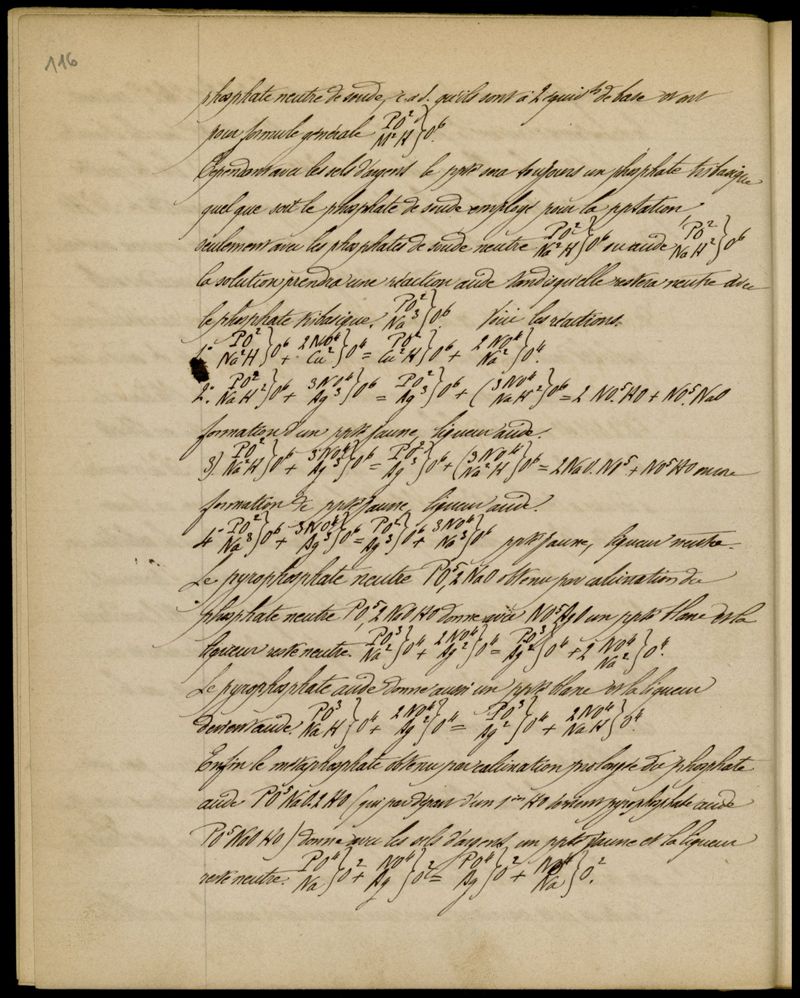 116
phosphate neutre de soude, c.a.d. qu'ils sont à 2 équival^ts de base et ont
pour formule générale PO² / M²H } O⁶.
Cependant avec les sels d'argent le ppté sera toujours un phosphate tribasique
quel que soit le phosphate de soude employé pour la pptation
seulement avec les phosphates de soude neutre PO² / Na²H } O⁶ ou acide PO² / NaH² } O⁶
la solution prendra une réaction acide tandis qu'elle restera neutre avec
le phosphate tribasique. PO² / Na³ } O⁶. Voici les réactions.
1° PO² / Na²H } O⁶ + 2NO⁴ / Cu² } O⁴ = PO² / Cu²H } O⁶ + 2NO⁴ / Na² } O⁴.
2° PO² / NaH² } O⁶ + 3NO⁴ / Ag³ } O⁶ = PO² / Ag³ } O⁶ + (3NO⁴ / NaH² } O⁶ = 2 NO⁵.HO + NO⁵.NaO
formation d'un ppté jaune, liqueur acide.
3) PO² / Na²H } O⁶ + 3NO⁴ / Ag³ } O⁶ = PO² / Ag³ } O⁶ + (3NO⁴ / Na²H } O⁶ = 2NaO.NO⁵ + NO⁵HO encore
formation de ppté jaune, liqueur acide.
4° PO² / Na³ } O⁶ + 3NO⁴ / Ag³ } O⁶ = PO² / Ag³ } O⁶ + 3NO⁴ / Na³ } O⁶ ppté jaune, liqueur neutre.
Le pyrophosphate neutre PO⁵,2NaO obtenu par calcination du
phosphate neutre PO⁵,2NaO HO donne avec NO⁵AgO un ppté blanc et la
liqueur reste neutre PO³ / Na² } O⁴ + 2NO⁴ / Ag² } O⁴ = PO³ / Ag² } O⁴ + 2 NO⁴ / Na² } O⁴.
Le pyrophosphate acide donne aussi un ppté blanc et la liqueur
devient acide. PO³ / NaH } O⁴ + 2NO⁴ / Ag² } O⁴ = PO³ / Ag² } O⁴ + 2NO⁴ / NaH } O⁴.
Enfin le métaphosphate obtenu par calcination prolongée du phosphate
acide PO⁵NaO.2HO (qui par départ d'un 1^er HO devient pyrophosphate acide
PO⁵NaO HO) donne avec les sels d'argent un ppté jaune et la liqueur
reste neutre. PO⁴ / Na } O² + NO⁴ / Ag } O² = PO⁴ / Ag } O² + NO⁴ / Na } O².